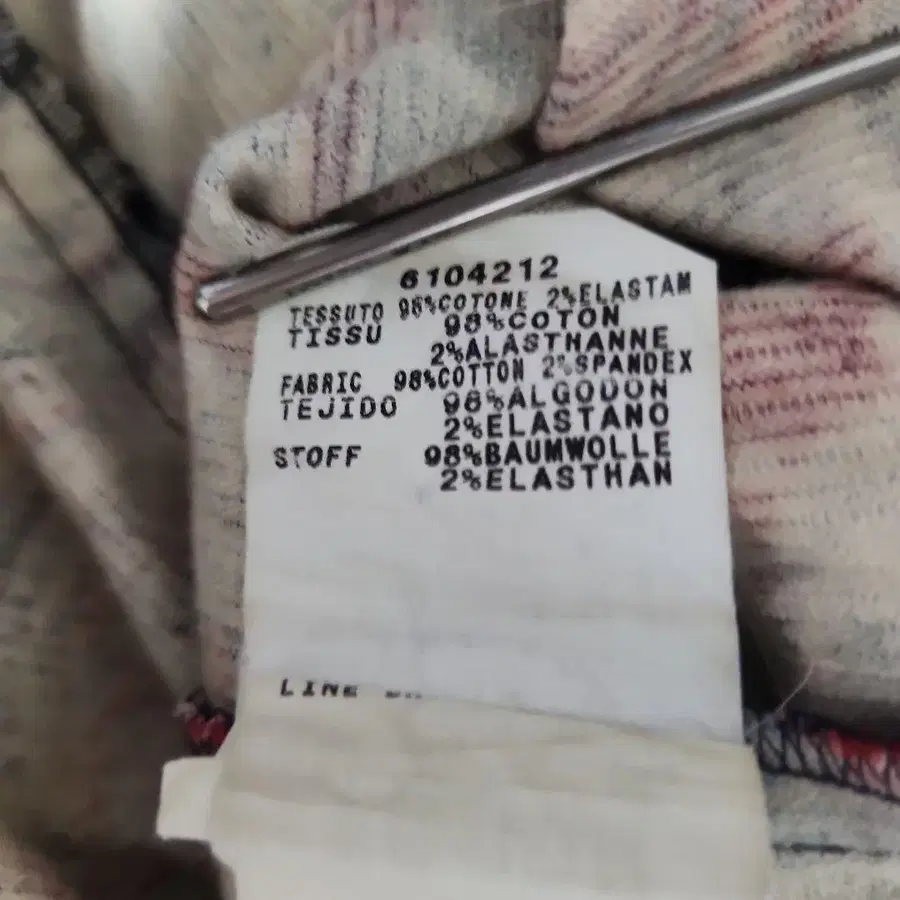 6104212
TESSUTO 98%COTONE 2%ELASTAM
TISSU 98%COTON
2%ALASTHANNE
FABRIC 98%COTTON 2%SPANDEX
TEJIDO 98%ALGODON
2%ELASTANO
STOFF 98%BAUMWOLLE
2%ELASTHAN
LINE